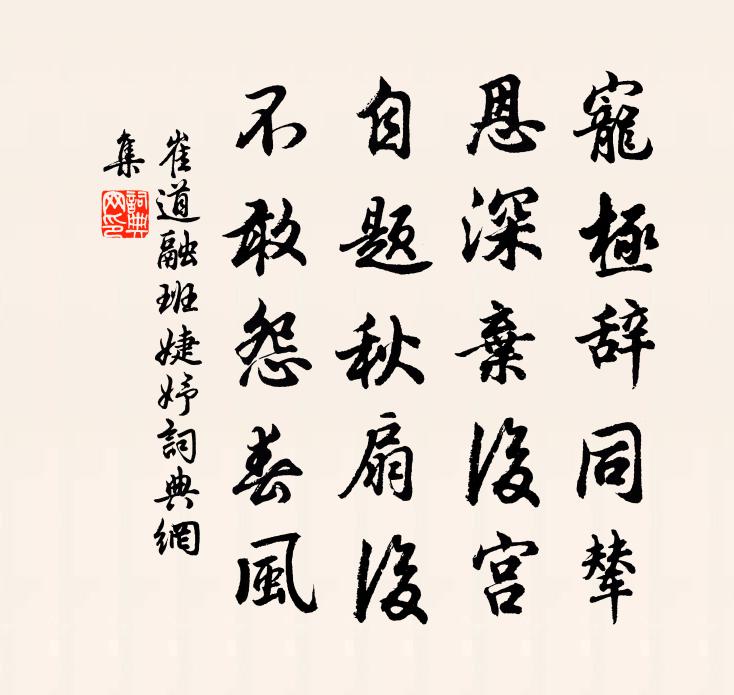 寵極辞同輦
恩深棄後宮
自题秋扇後
不敢怨春風
崔道融班婕妤詞典網
集
詞典网印